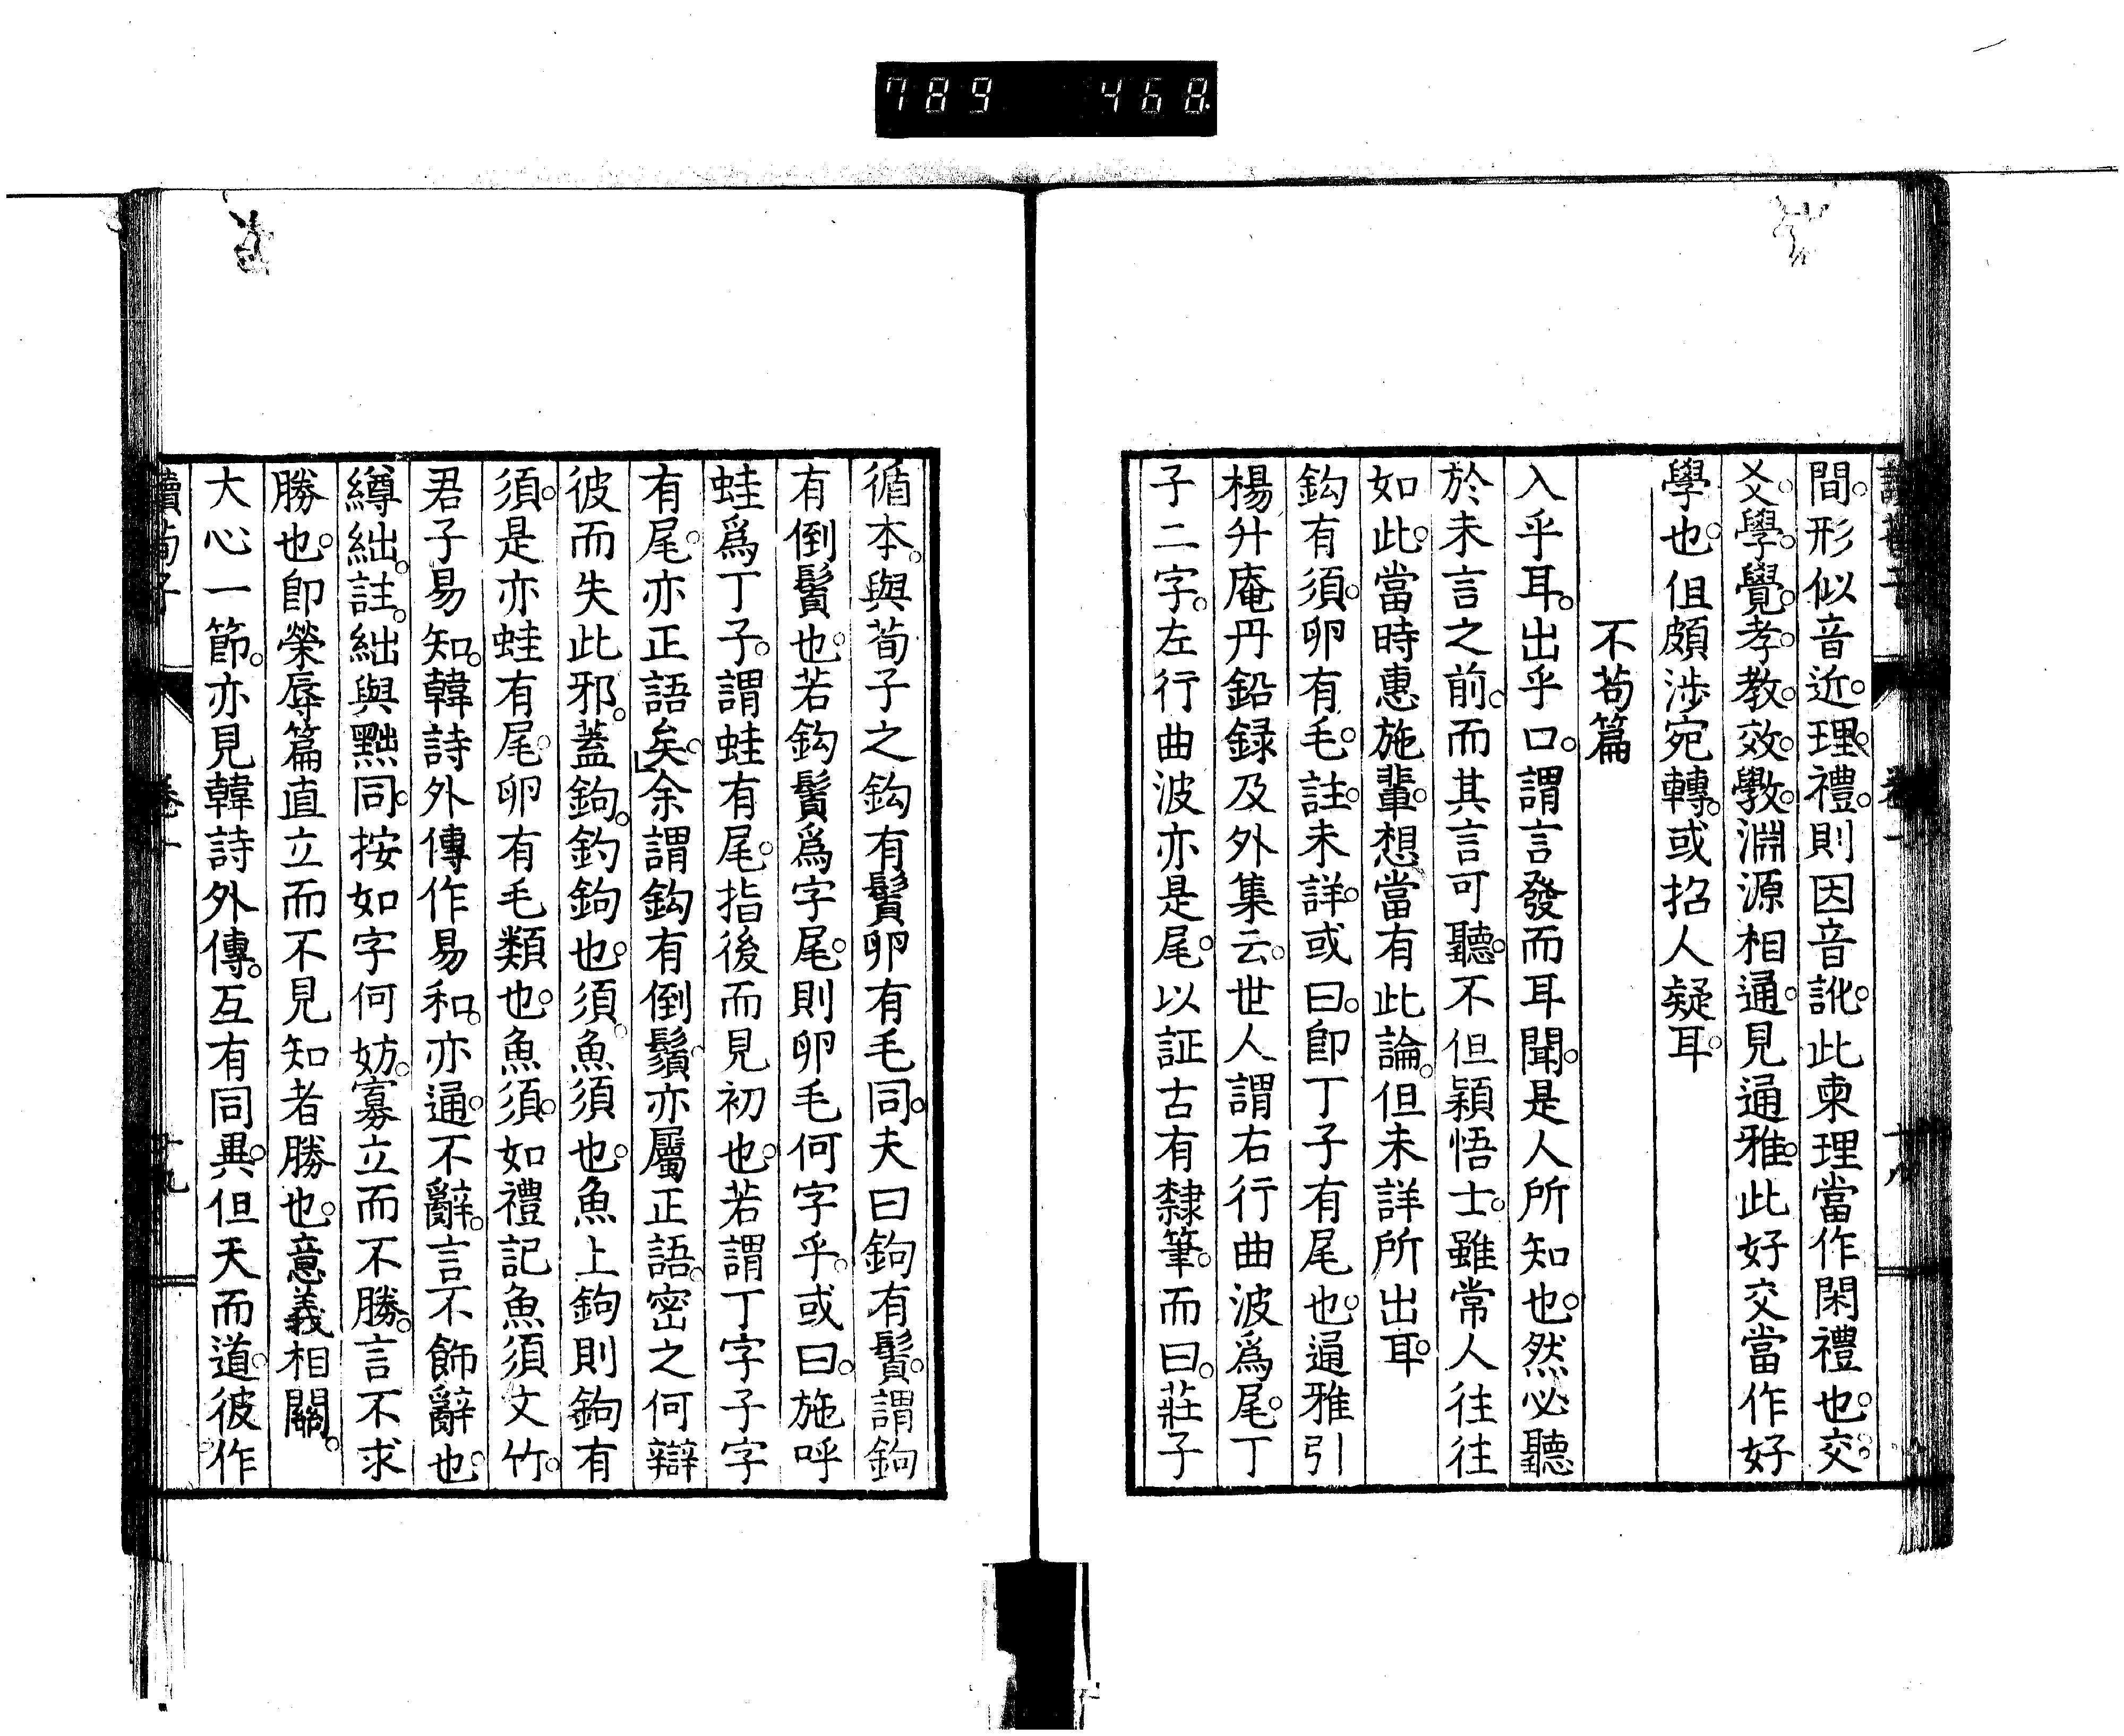 789 468
間。形似音近。理。禮。則因音訛。此柬理當作閑禮也。交。
爻。學。覺。孝。教。效。斆。淵源相通。見通雅。此好交當作好
學也。但頗涉宛轉。或招人疑耳。
不苟篇
入乎耳。出乎口。謂言發而耳聞。是人所知也。然必聽
於未言之前。而其言可聽。不但穎悟士。雖常人往往
如此。當時惠施輩。想當有此論。但未詳所出耳。
鈎有須。卵有毛。註。未詳。或曰。即丁子有尾也。通雅引
楊升庵丹鉛録及外集云。世人謂右行曲波爲尾。丁
子二字。左行曲波亦是尾。以証古有隸筆。而曰。莊子
循本。與荀子之鈎有鬚卵有毛同。夫曰鉤有鬚。謂鉤
有倒鬚也。若鈎鬚爲字尾。則卵毛何字乎。或曰。施呼
蛙爲丁子。謂蛙有尾。指後而見初也。若謂丁字子字
有尾。亦正語矣。」余謂鈎有倒鬚。亦屬正語。密之何辯
彼而失此邪。蓋鉤。釣鉤也。須。魚須也。魚上鉤則鉤有
須。是亦蛙有尾。卵有毛類也。魚須。如禮記魚須文竹。
君子易知。韓詩外傳作易和。亦通。不辭。言不飾辭也。
繜絀。註。絀與黜同。按如字何妨。寡立而不勝。言不求
勝也。即榮辱篇直立而不見知者勝也。意義相關。
大心一節。亦見韓詩外傳。互有同異。但天而道。彼作
讀荀子 卷一 十九